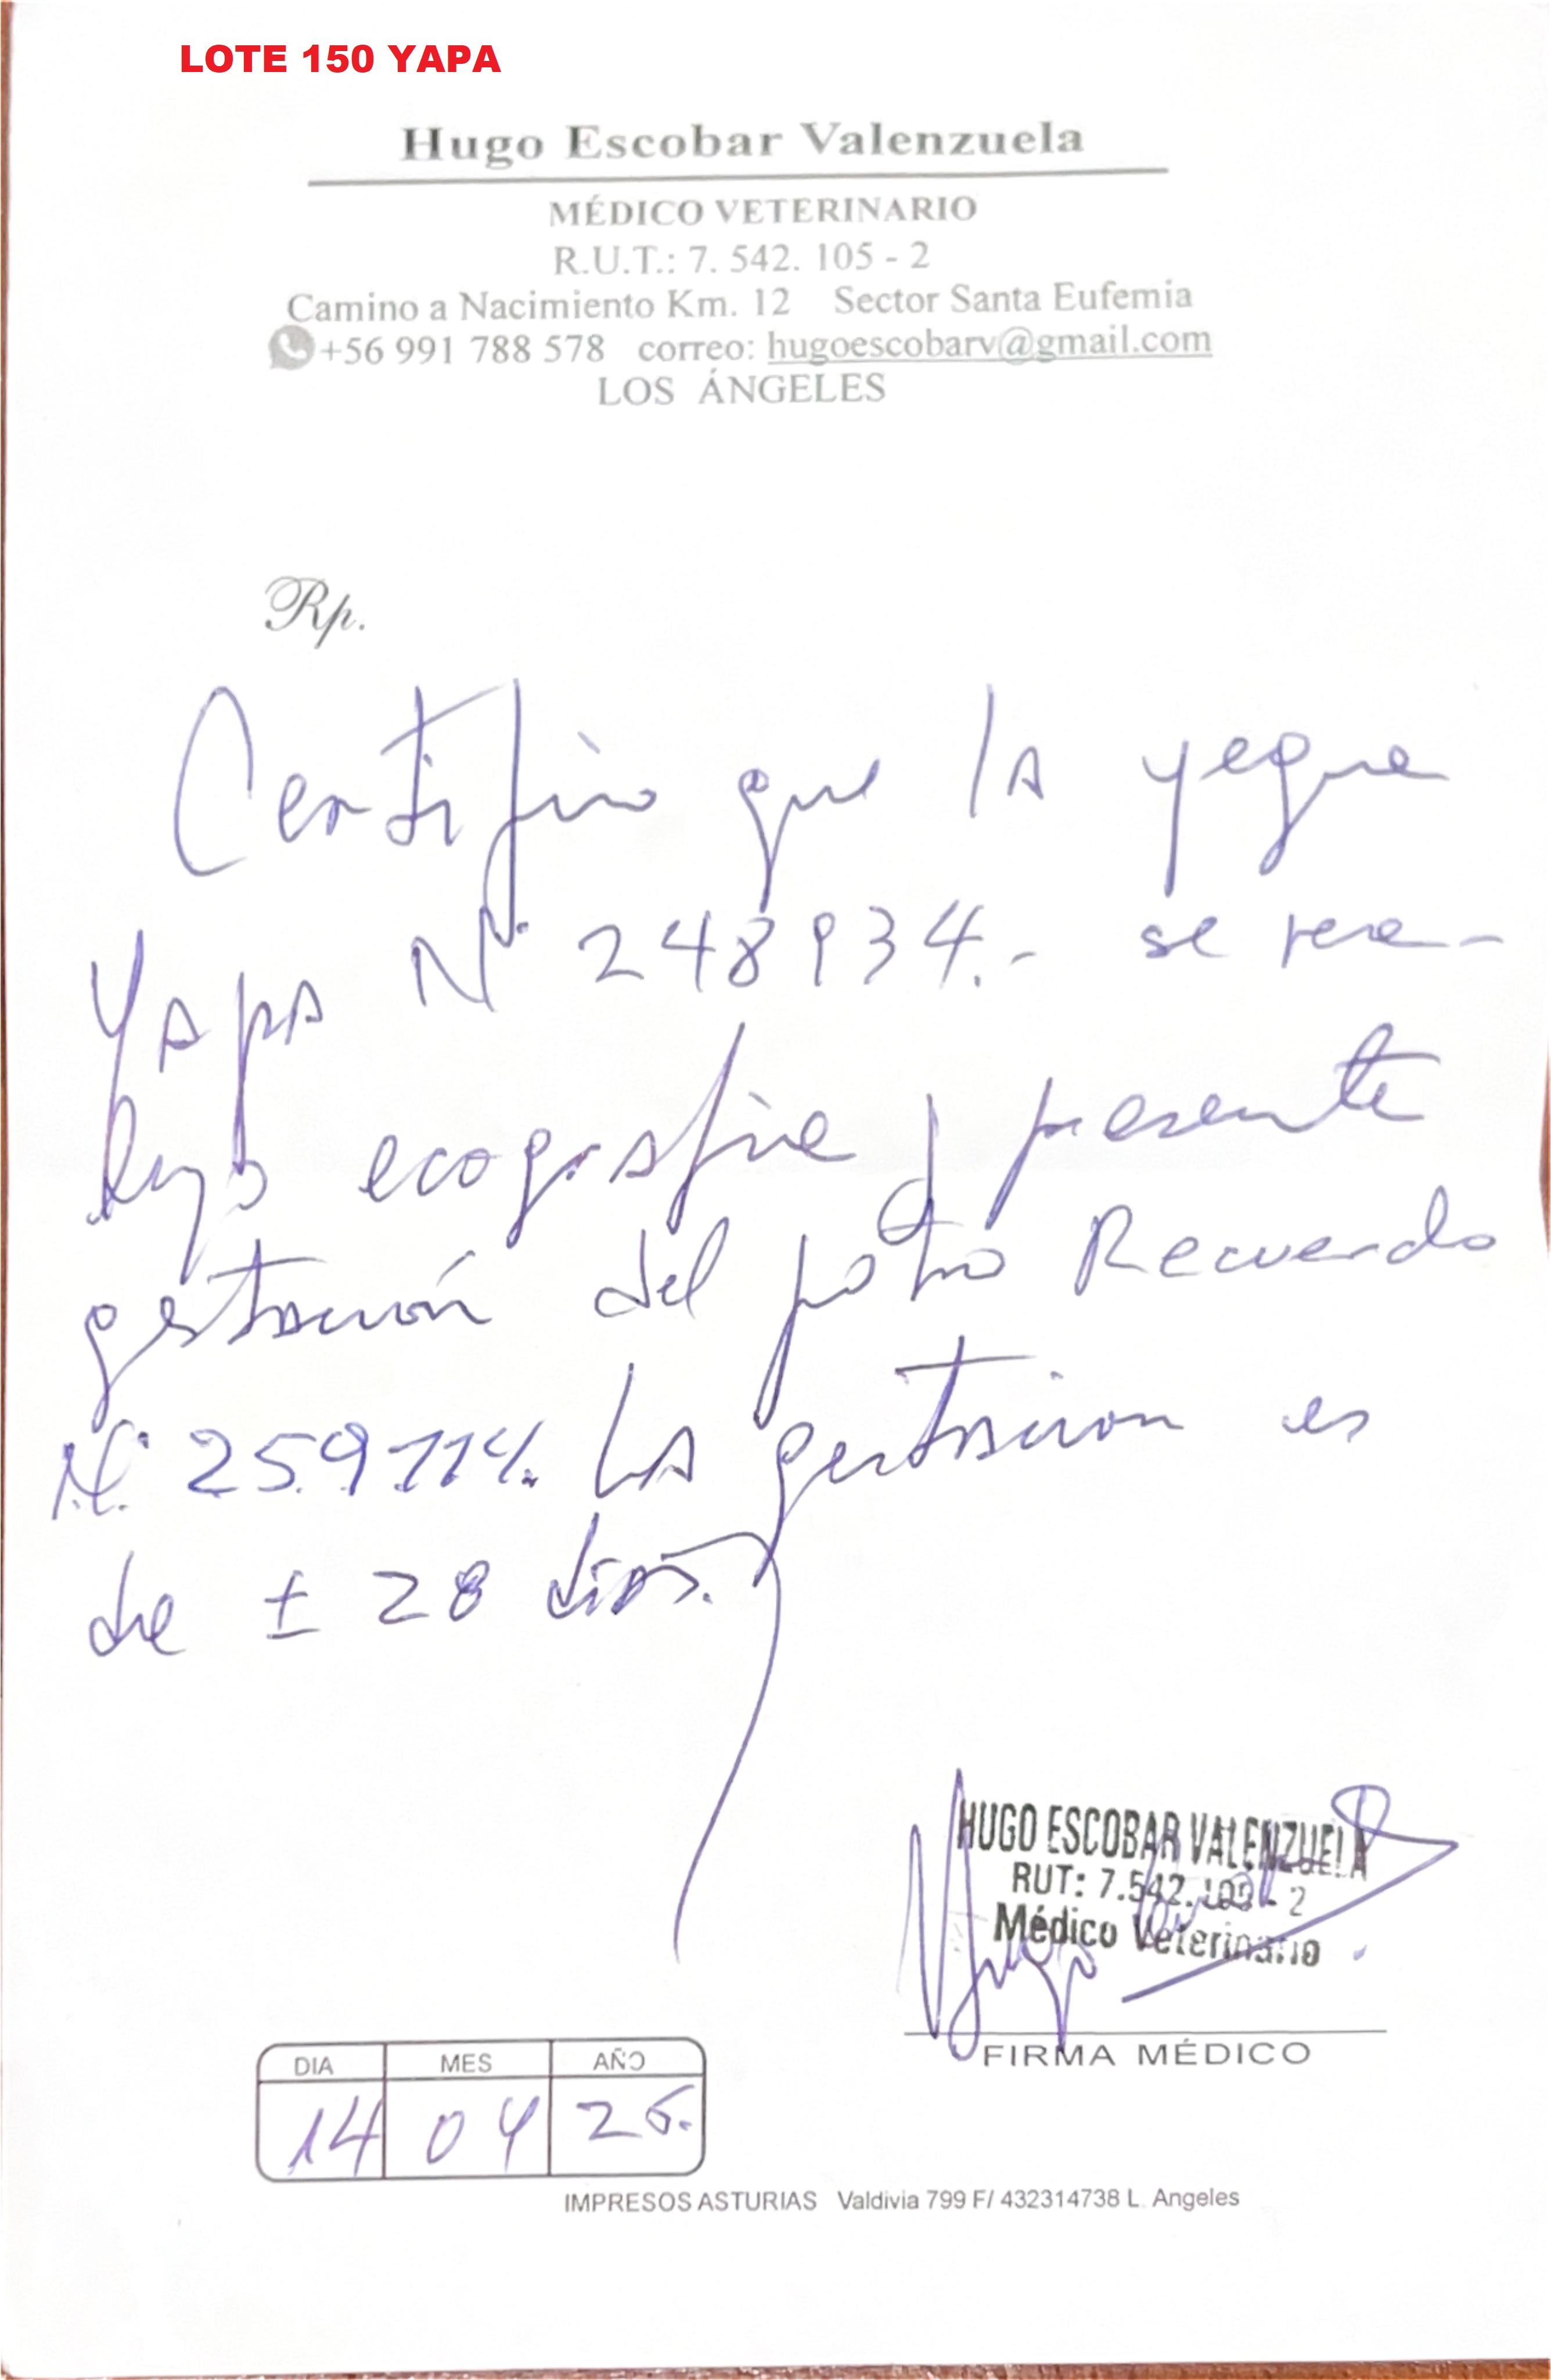 LOTE 150 YAPA
Hugo Escobar Valenzuela
MÉDICO VETERINARIO
R.U.T.: 7. 542. 105 - 2
Camino a Nacimiento Km. 12 Sector Santa Eufemia
+56 991 788 578 correo: hugoescobarv@gmail.com
LOS ÁNGELES
Rp.
Certifico que la yegua
Yapa N° 248934.- se
ecografia y presente
gestación del potro Recuerdo
N° 259.114. La gestacion es
de ± 28 dias.
HUGO ESCOBAR VALENZUELA
RUT: 7.542.105 - 2
Médico Veterinario
FIRMA MÉDICO
DIA MES AÑO
14 04 25.
IMPRESOS ASTURIAS Valdivia 799 F/ 432314738 L. Angeles